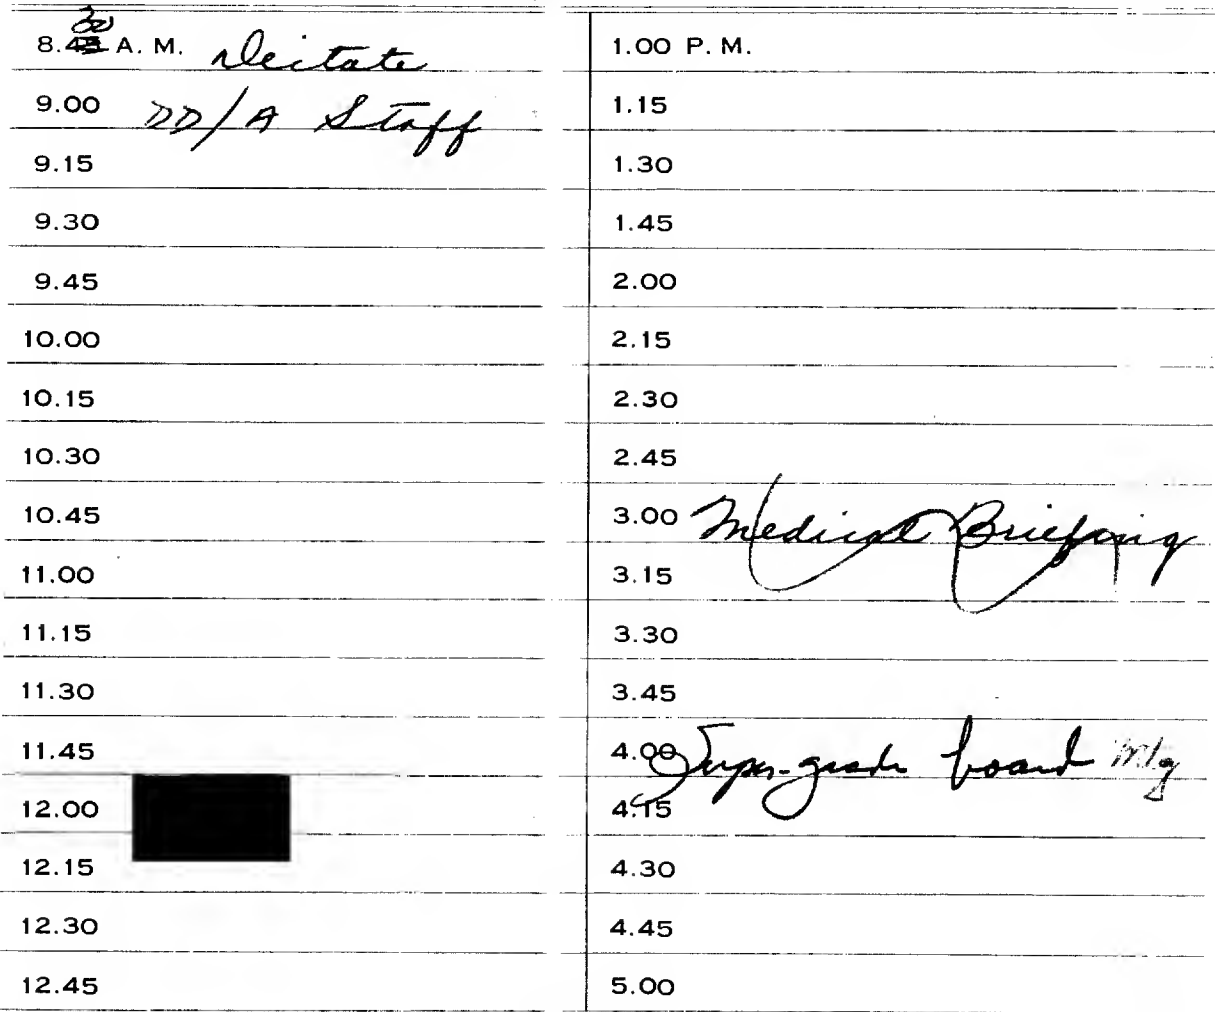 8.45 30 A. M. Dictate
9.00 DD/A Staff
9.15
9.30
9.45
10.00
10.15
10.30
10.45
11.00
11.15
11.30
11.45
12.00
12.15
12.30
12.45
1.00 P. M.
1.15
1.30
1.45
2.00
2.15
2.30
2.45
3.00 Medical Briefing
3.15
3.30
3.45
4.00 Super-grade board Mtg
4.15
4.30
4.45
5.00